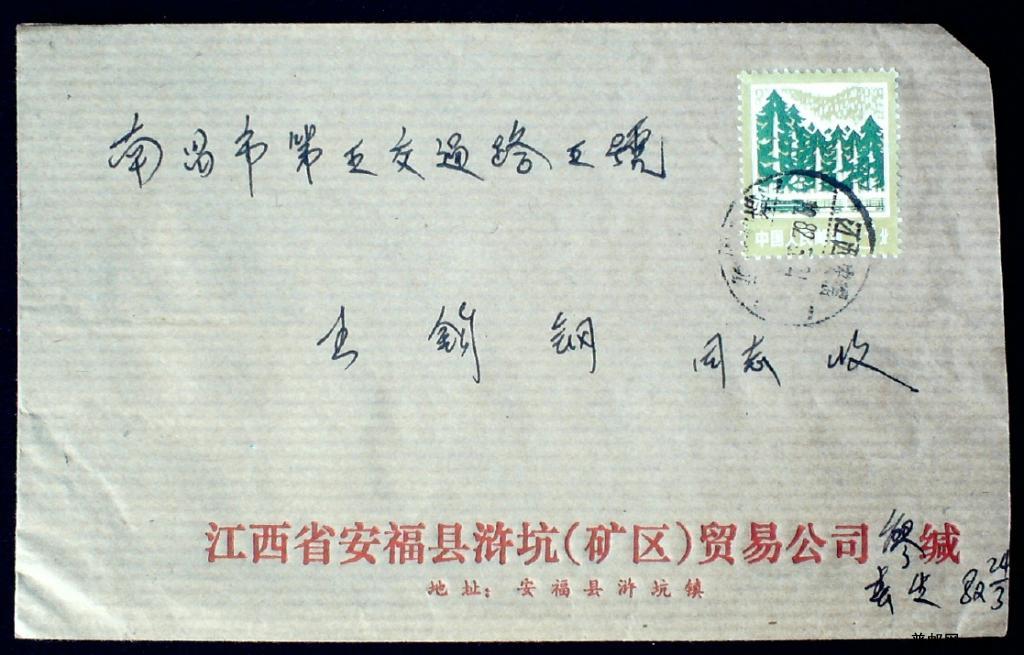 南昌市第五交通路五號
中国人民
江西
王 钢 同志 收
江西省安福县浒坑(矿区)贸易公司 缪 缄
地址：安福县浒坑镇
24/3
普邮网